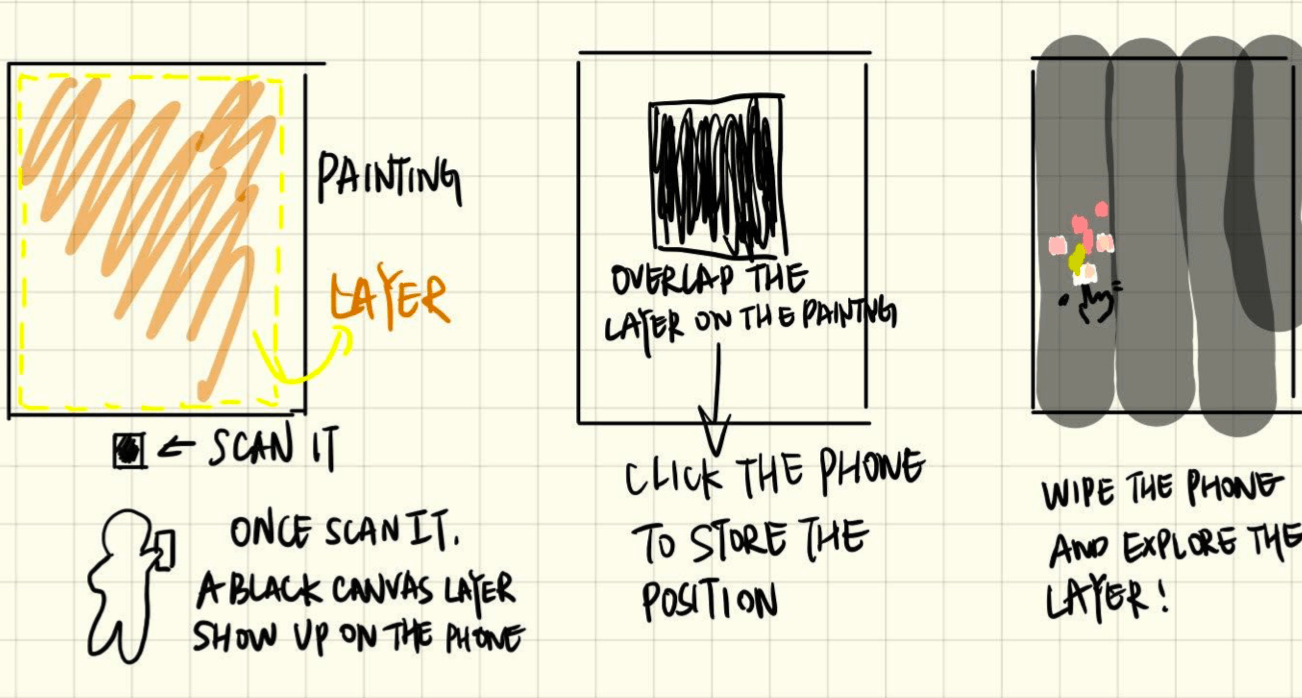 PAINTING
LAYER
SCAN IT
ONCE SCAN IT.
A BLACK CANVAS LAYER
SHOW UP ON THE PHONE
OVERLAP THE
LAYER ON THE PAINTNG
CLICK THE PHONE
TO STORE THE
POSITION
WIPE THE PHONE
AND EXPLORE THE
LAYER!